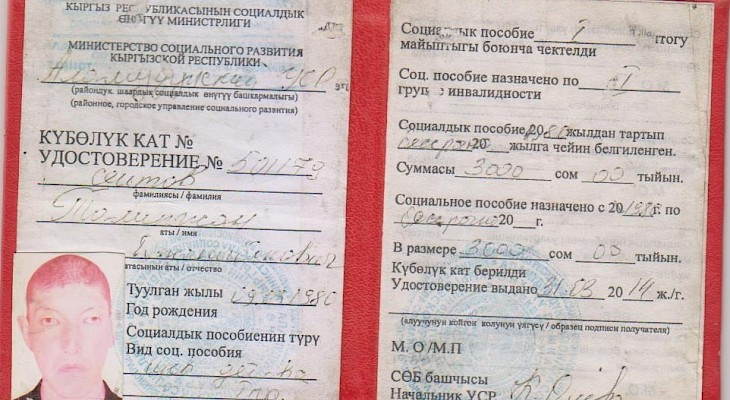 КЫРГЫЗ РЕСПУБЛИКАСЫНЫН СОЦИАЛДЫК
ӨНҮГҮҮ МИНИСТРЛИГИ
МИНИСТЕРСТВО СОЦИАЛЬНОГО РАЗВИТИЯ
КЫРГЫЗСКОЙ РЕСПУБЛИКИ
УСР
(райондук, шаардык социалдык өнүгүү башкармалыгы)
(районное, городское управление социального развития)
КҮБӨЛҮК КАТ №
УДОСТОВЕРЕНИЕ № 501179
Сеитов
фамилиясы / фамилия
аты / имя
атасынын аты / отчество
Туулган жылы 1980
Год рождения
Социалдык пособиенин түрү
Вид соц. пособия
Социалдык пособие I тогу
майыптыгы боюнча чектелди
Соц. пособие назначено по I
группе инвалидности
Социалдык пособие 20 жылдан тартып
20 жылга чейин белгиленген.
Суммасы 3000 сом 00 тыйын.
Социальное пособие назначено с 20 1980 г. по
бессрочно 20 г.
В размере 3000 сом 00 тыйын.
Күбөлүк кат берилди
Удостоверение выдано 31.03 2014 ж./г.
(алуучунун койгон колунун үлгүсү / образец подписи получателя)
М. О /М.П
СӨБ башчысы
Начальник УСР